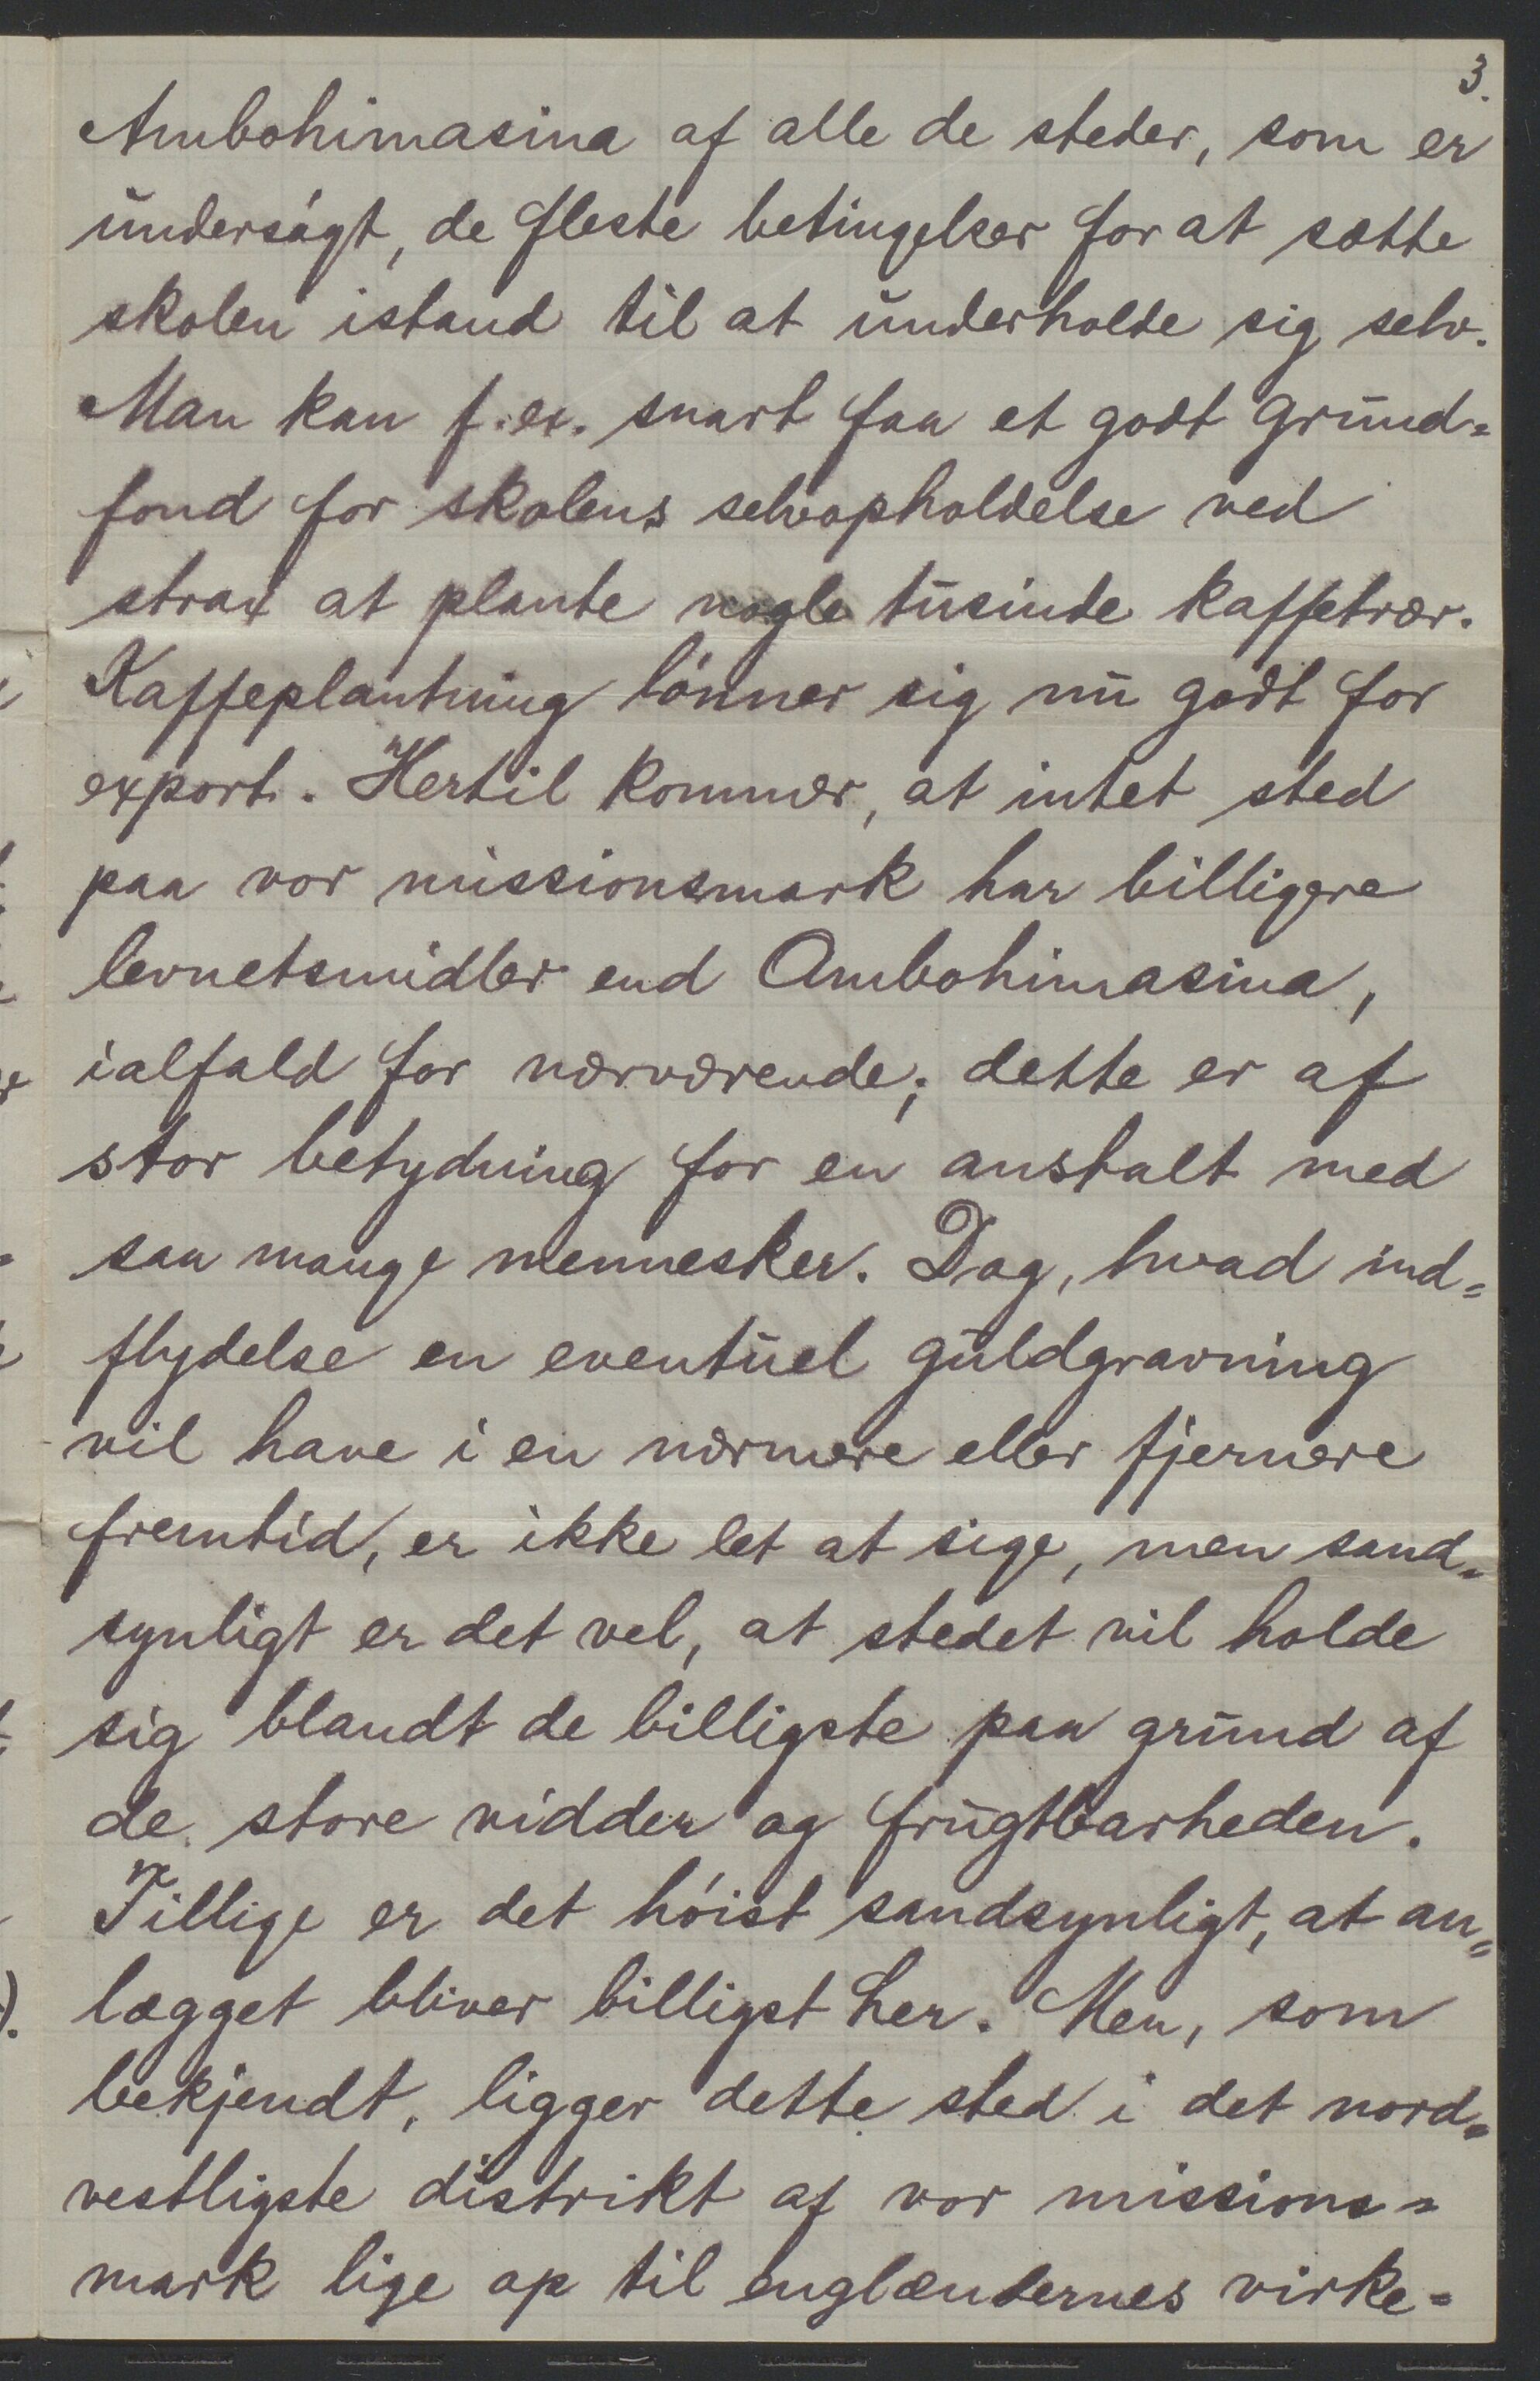 3.
Ambohimasina af alle de steder, som er
undersøgt, de fleste betingelser for at sætte
skolen istand til at underholde sig selv.
Man kan f. ex. snart faa et godt grund=
fond for skolens selvopholdelse ved
strax at plante nogle tusinde kaffetrær.
Kaffeplantning lønner sig nu godt for
export. Hertil kommer, at intet sted
paa vor missionsmark har billigere
levnetsmidler end Ambohimasina,
ialfald for nærværende; dette er af
stor betydning for en anstalt med
saa mange mennesker. Dog, hvad ind=
flydelse en eventuel guldgravning
vil have i en nærmere eller fjernere
fremtid, er ikke let at sige, men sand=
synligt er det vel, at stedet vil holde
sig blandt de billigste paa grund af
de store vidder og frugtbarheden.
Tillige er det høist sandsynligt, at an=
lægget bliver billigst her. Men, som
bekjendt, ligger dette sted i det nord=
vestligste distrikt af vor missions=
mark lige op til englændernes virke=